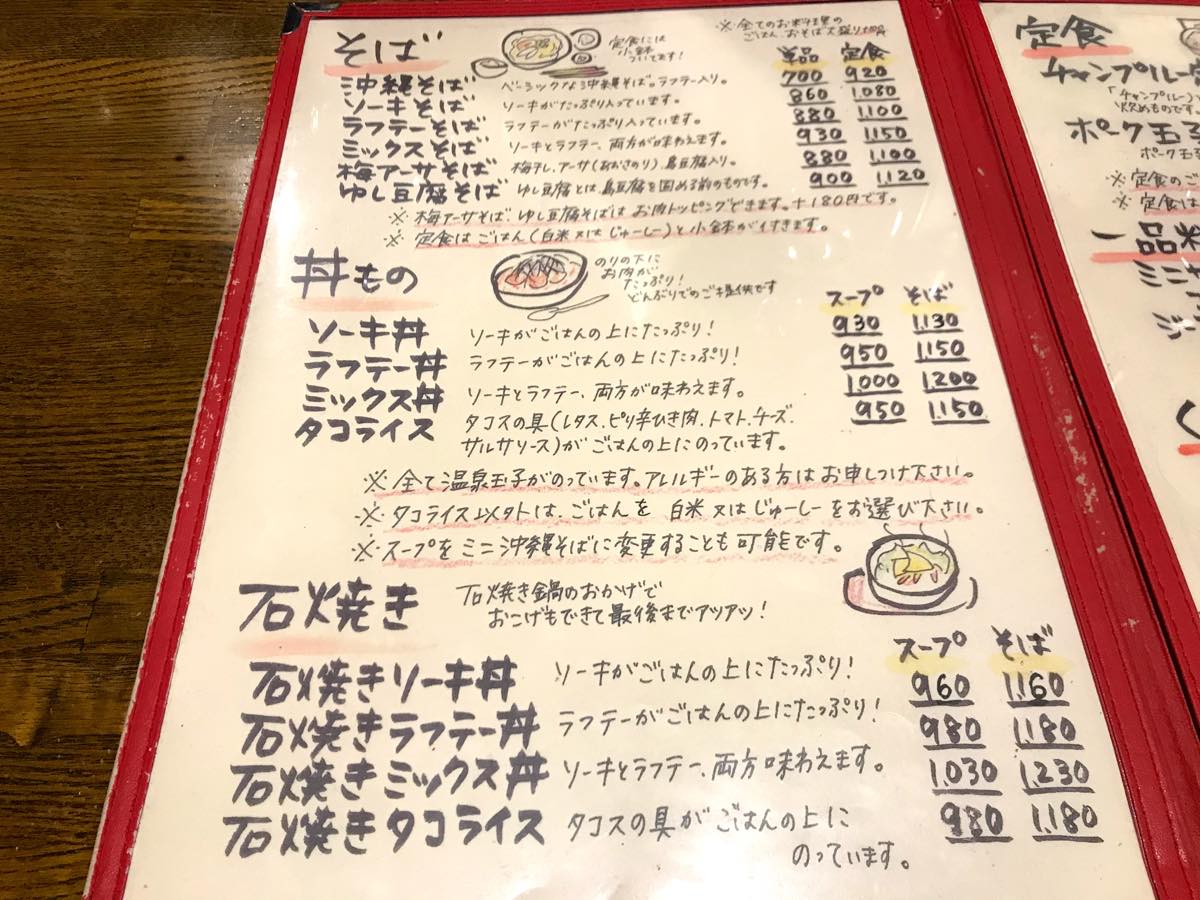 そば
定食には
小鉢
ついてます!
※全てのお料理の
ごはん、おそば大盛り100円
単品 定食
沖縄そば ベーシックな沖縄そば。ラフテー入り。 700 920
ソーキそば ソーキがたっぷり入っています。 860 1.080
ラフテーそば ラフテーがたっぷり入っています。 880 1.100
ミックスそば ソーキとラフテー、両方が味わえます。 930 1.150
梅アーサそば 梅干し、アーサ(あおさのり)、島豆腐入り。 880 1.100
ゆし豆腐そば ゆし豆腐とは、島豆腐を固める前のものです。 900 1.120
※梅アーサそば、ゆし豆腐そばは お肉トッピングできます。+180円です。
※定食は ごはん(白米又はじゅーしー)と小鉢が付きます。
丼もの
のりの下に
お肉が
たっぷり!
どんぶりでのご提供です
スープ そば
ソーキ丼 ソーキがごはんの上にたっぷり! 930 1.130
ラフテー丼 ラフテーがごはんの上にたっぷり! 950 1.150
ミックス丼 ソーキとラフテー、両方が味わえます。 1.000 1.200
タコライス タコスの具(レタス、ピリ辛ひき肉、トマト、チーズ、 950 1.150
サルサソース)がごはんの上にのっています。
※全て温泉玉子がのっています。アレルギーのある方はお申しつけ下さい。
※タコライス以外は、ごはんを 白米又はじゅーしーをお選び下さい。
※スープをミニ沖縄そばに変更することも可能です。
石焼き
石焼き鍋のおかげで
おこげもできて最後までアツアツ!
スープ そば
石焼きソーキ丼 ソーキがごはんの上にたっぷり! 960 1.160
石焼きラフテー丼 ラフテーがごはんの上にたっぷり! 980 1.180
石焼きミックス丼 ソーキとラフテー、両方味わえます。 1.030 1.230
石焼きタコライス タコスの具がごはんの上に 980 1.180
のっています。
定食
チャンプルー
「チャンプルー」
炒めものです。
ポーク玉子
ポーク玉
※定食のご
※定食は
一品料
ミニ
ジー